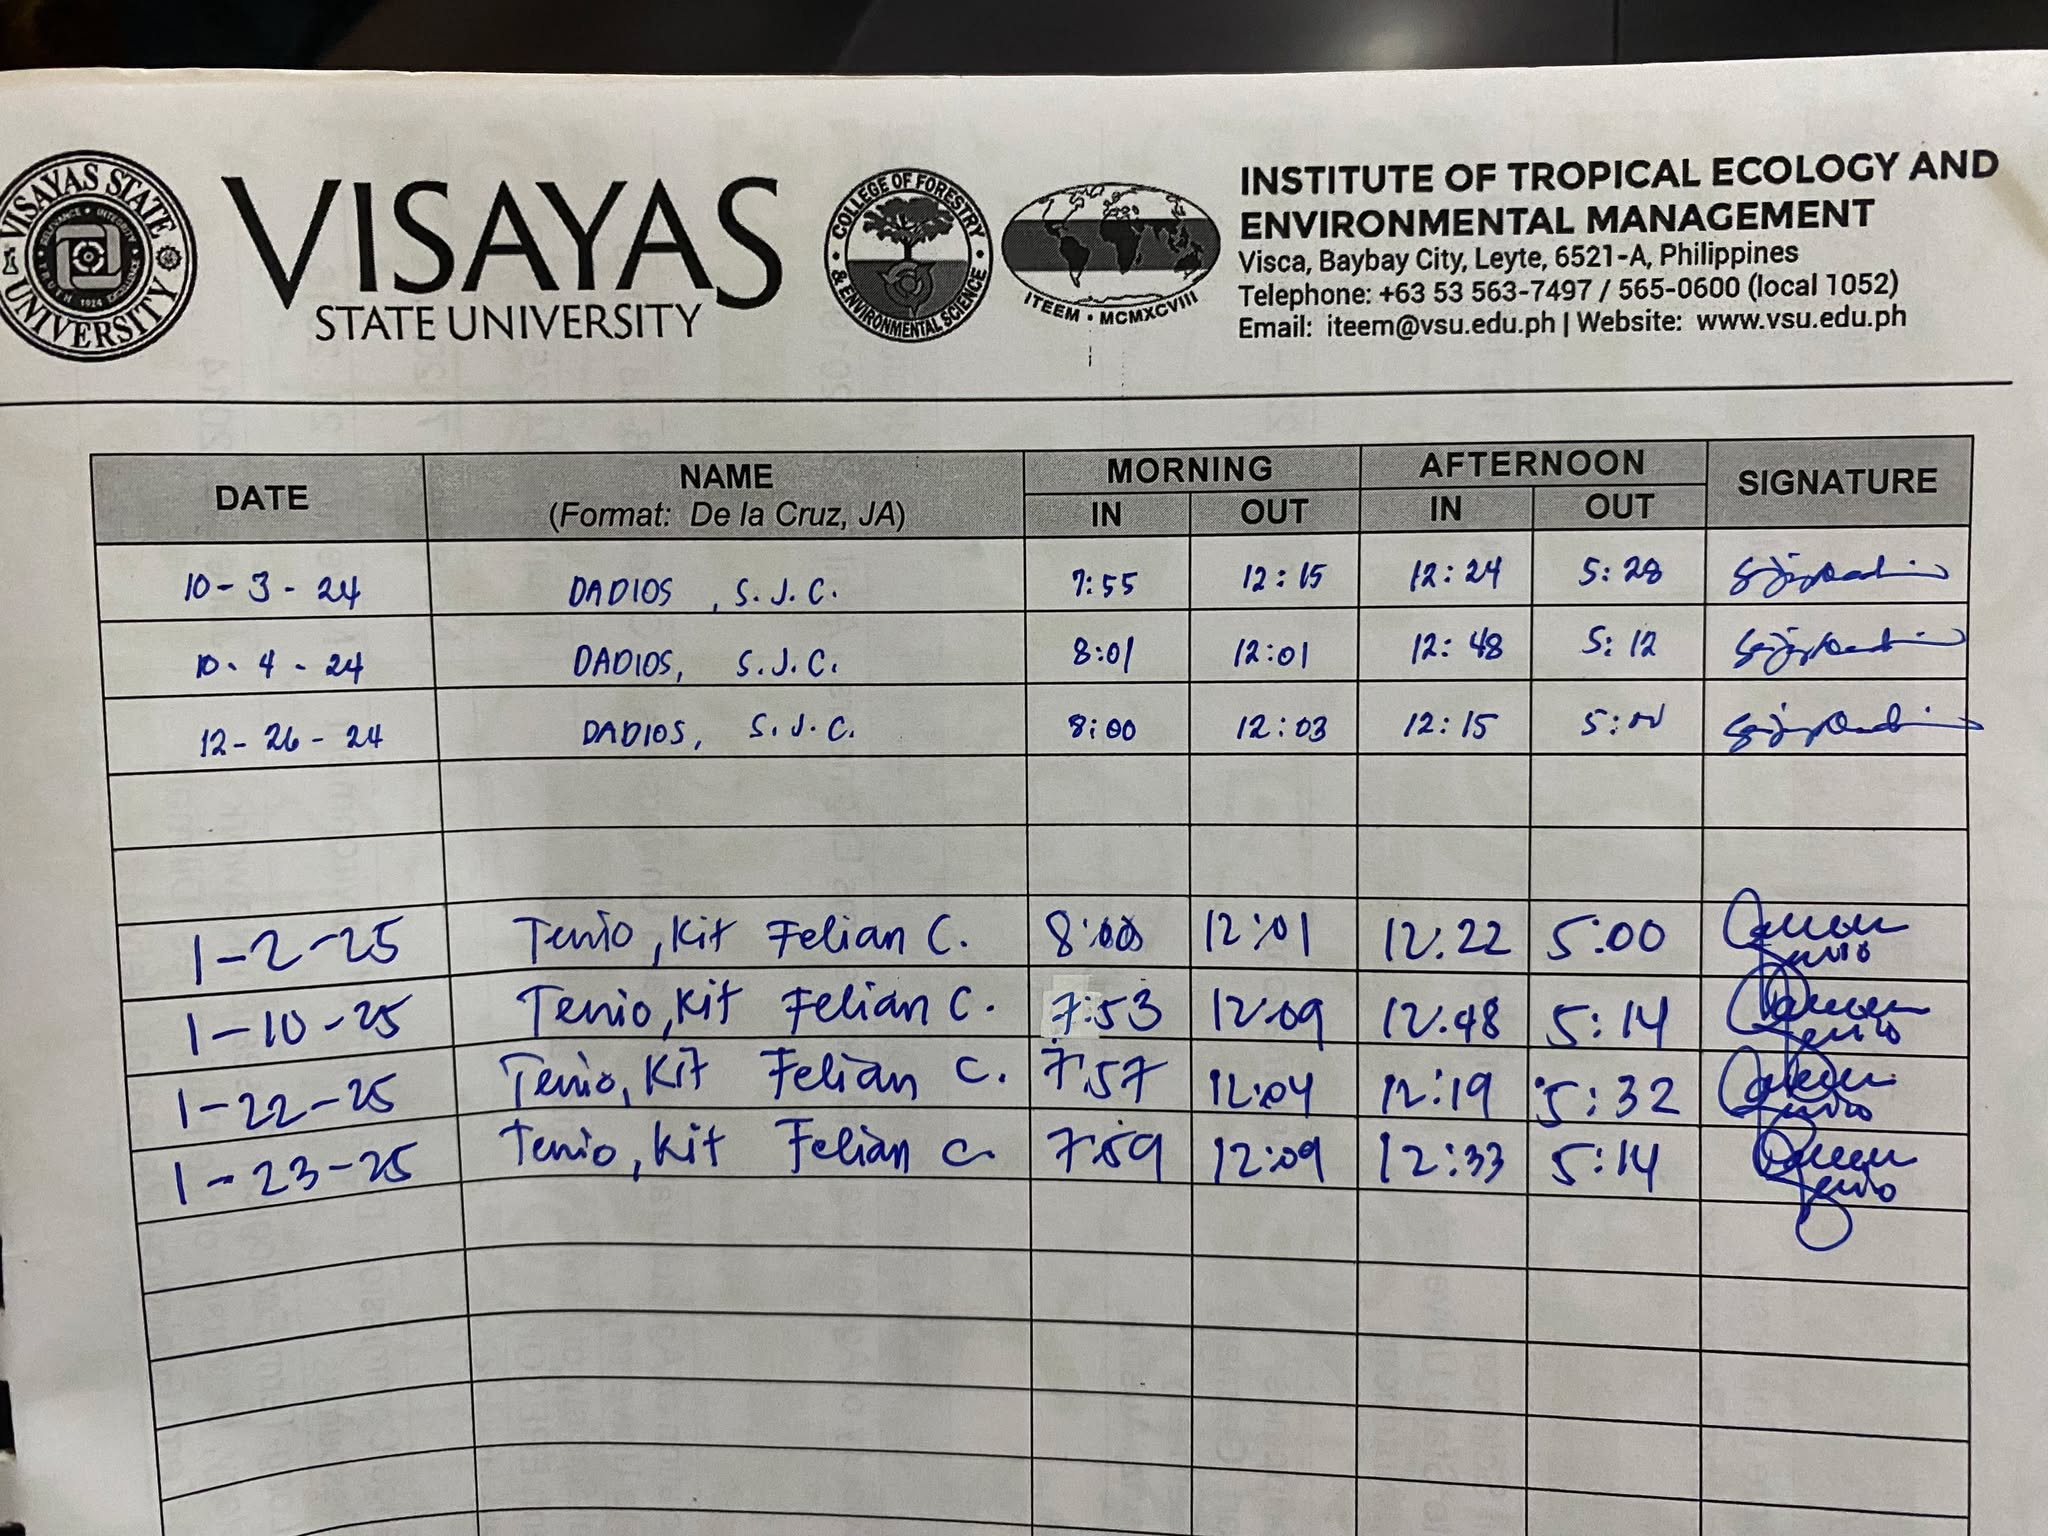 VISAYAS STATE UNIVERSITY
RELEVANCE • INTEGRITY • TRUTH 1924 EXCELLENCE
VISAYAS
STATE UNIVERSITY
COLLEGE OF FORESTRY & ENVIRONMENTAL SCIENCE
ITEEM • MCMXCVIII
INSTITUTE OF TROPICAL ECOLOGY AND
ENVIRONMENTAL MANAGEMENT
Visca, Baybay City, Leyte, 6521-A, Philippines
Telephone: +63 53 563-7497 / 565-0600 (local 1052)
Email: iteem@vsu.edu.ph | Website: www.vsu.edu.ph
DATE NAME MORNING AFTERNOON SIGNATURE
(Format: De la Cruz, JA) IN OUT IN OUT
10-3-24 DADIOS, S.J.C. 7:55 12:15 12:24 5:28
10-4-24 DADIOS, S.J.C. 8:01 12:01 12:48 5:12
12-26-24 DADIOS, S.J.C. 8:00 12:03 12:15 5:00
1-2-25 Tenio, Kit Felian C. 8:00 12:01 12:22 5:00
1-10-25 Tenio, Kit Felian C. 7:53 12:09 12:48 5:14
1-22-25 Tenio, Kit Felian C. 7:57 12:04 12:19 5:32
1-23-25 Tenio, Kit Felian C. 7:59 12:09 12:33 5:14